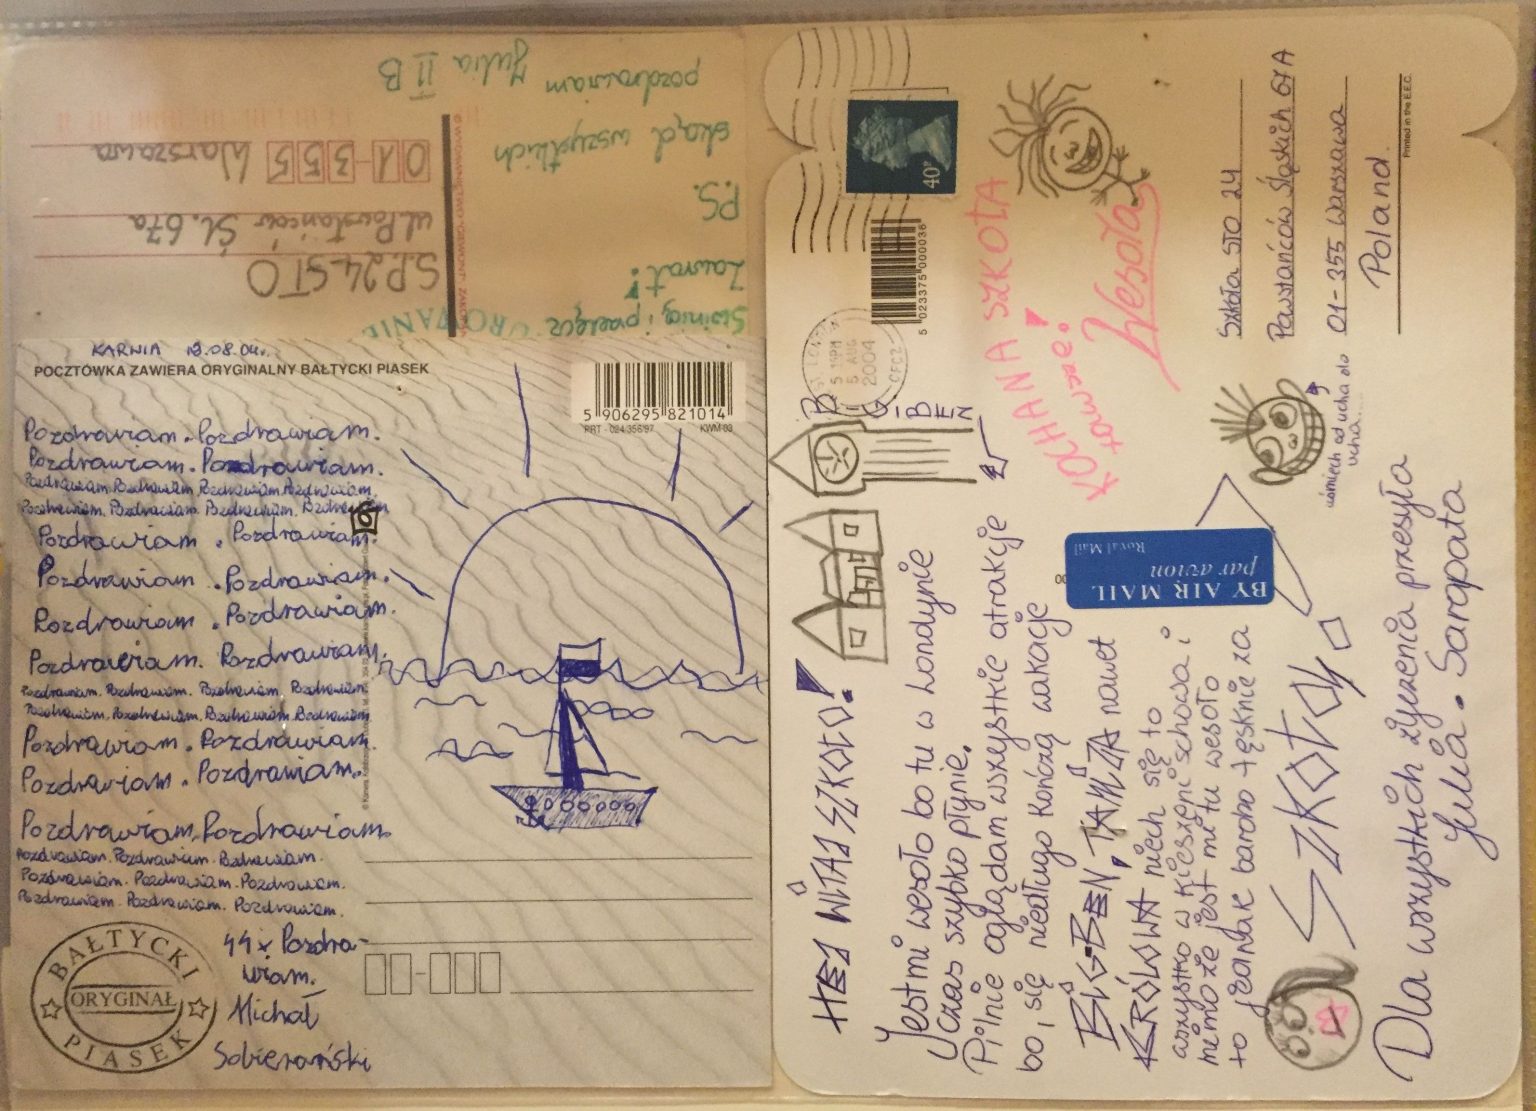 pozdrawiam Julia II B
skąd wszystkich
P.S.
Zawrat!
Świnią i przełęcz
S.P. 24 STO
ul. Powstańców Śl. 67a
01-355 Warszawa
KARWIA 12.08.04r.
POCZTÓWKA ZAWIERA ORYGINALNY BAŁTYCKI PIASEK
5 906295 821014
PRT - 024/356/97 KWM 03
Pozdrawiam. Pozdrawiam.
Pozdrawiam. Pozdrawiam.
Pozdrawiam. Pozdrawiam. Pozdrawiam. Pozdrawiam.
Pozdrawiam. Pozdrawiam. Pozdrawiam. Pozdrawiam.
Pozdrawiam. Pozdrawiam.
Pozdrawiam. Pozdrawiam.
Pozdrawiam. Pozdrawiam.
Pozdrawiam. Pozdrawiam.
Pozdrawiam. Pozdrawiam. Pozdrawiam. Pozdrawiam.
Pozdrawiam. Pozdrawiam. Pozdrawiam. Pozdrawiam.
Pozdrawiam. Pozdrawiam.
Pozdrawiam. Pozdrawiam.
Pozdrawiam. Pozdrawiam.
Pozdrawiam. Pozdrawiam. Pozdrawiam.
Pozdrawiam. Pozdrawiam. Pozdrawiam.
Pozdrawiam. Pozdrawiam. Pozdrawiam.
44x Pozdra-
wiam.
Michał
Sobierański
BAŁTYCKI
ORYGINAŁ
PIASEK
HEJ WITAJ SZKOŁO!
BIG-BEN
Jestmi wesoło bo tu w Londynie
Czas szybko płynie.
Pilnie oglądam wszystkie atrakcje
bo, się niedługo kończą wakacje
BIG-BEN, TAMIZA nawet
KRÓLOWA niech się to
wszystko w kieszeni schowa i
mimo że jest mi tu wesoło
to jednak bardzo tęsknię za
SZKOŁĄ.
Dla wszystkich życzenia przesyła
Julia. Sarapata
40P
5 023375 000036
5 AUG
2004
KOCHANA SZKOŁA
zawsze!
Wesoła
BY AIR MAIL
par avion
Royal Mail
uśmiech od ucha do
ucha....
Szkoła STO 24
Powstańców Śląskich 67A
01-355 Warszawa
Poland
Printed in the E.E.C.